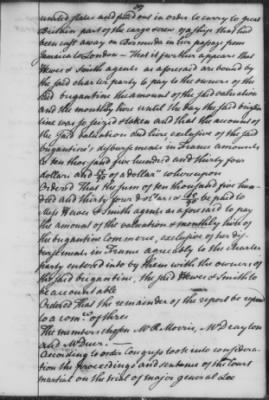 89
united states and fitted out in order to carry to great
Brittain part of the cargo crew of a ship that had
been cast away on Bermuda in her passage from
Jamaica to London — That it further appears that
Hewes & Smith agents as aforesaid are bound by
the said charter party to pay to the owners of the
said brigantine the amount of the said valuation
and the monthly hire until the day the said brigan
tine was so seized & taken and that the amount of
the said valuation and hire exclusive of the said
brigantine's disbursements in France amounts
to ten thousand five hundred and thirty four
dollars and of a dollar" whereupon
Ordered That the sum of ten thousand five hun
dred and thirty four dollars & be paid to
Messrs Hewes & Smith agents as aforesaid to pay
the amount of the valuation & monthly hire of
the brigantine Commerce, exclusive of her dis
bursements in France agreeably to the charter
party entered into by them with the owners of
the said brigantine, the said Hewes & Smith to
be accountable
Ordered That the remainder of the report be referred
to a comee of three
The members chosen Mr R. Morris, Mr Drayton
and Mr Duer. —
According to order Congress took into considera
tion the proceedings and sentence of the Court
martial on the trial of major general Lee